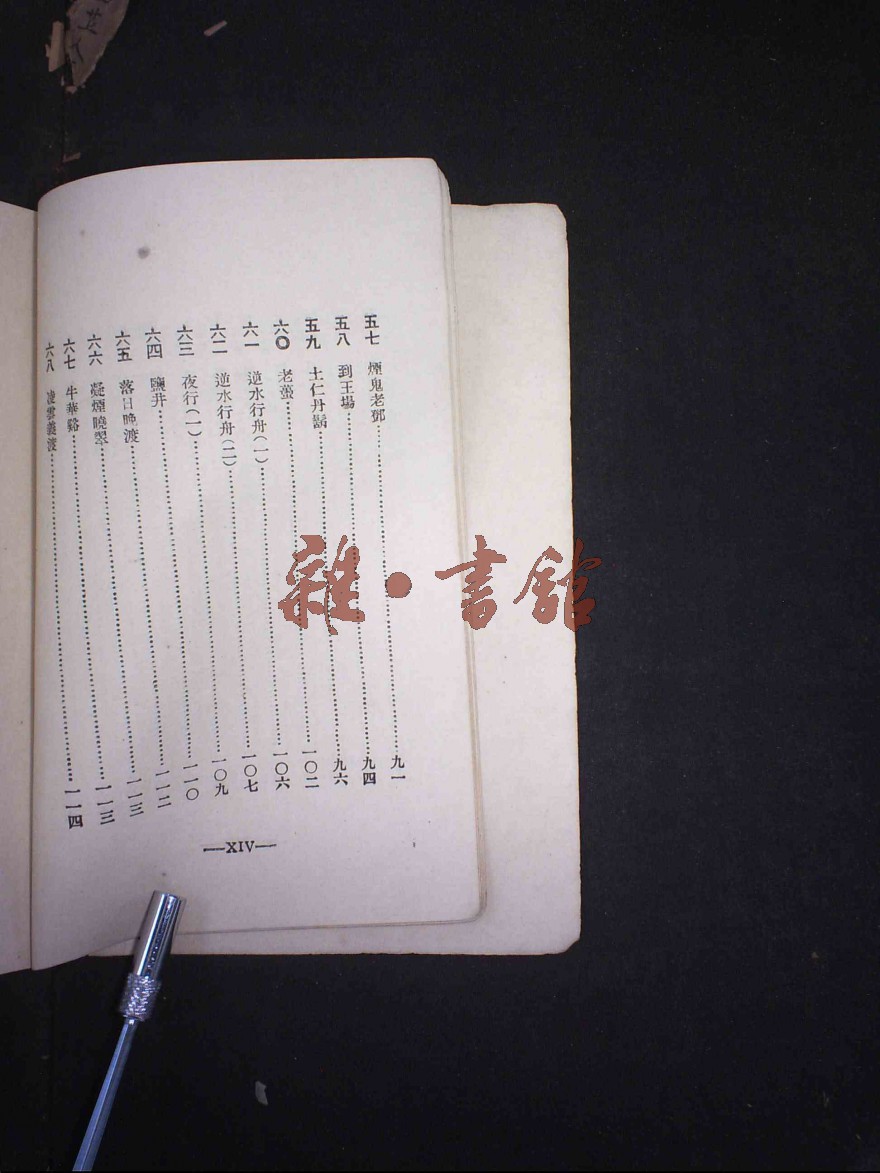 五七 煙鬼老鄧……九一
五八 到王場……九四
五九 土仁丹鬍……九六
六〇 老螢……一〇二
六一 逆水行舟(一)……一〇六
六二 逆水行舟(二)……一〇七
六三 夜行(一)……一〇九
六四 鹽井……一一〇
六五 落日晚渡……一一二
六六 凝煙曉翠……一一三
六七 牛華谿……一一三
六八 凌雲義渡……一一四
—XIV—
雜·書館